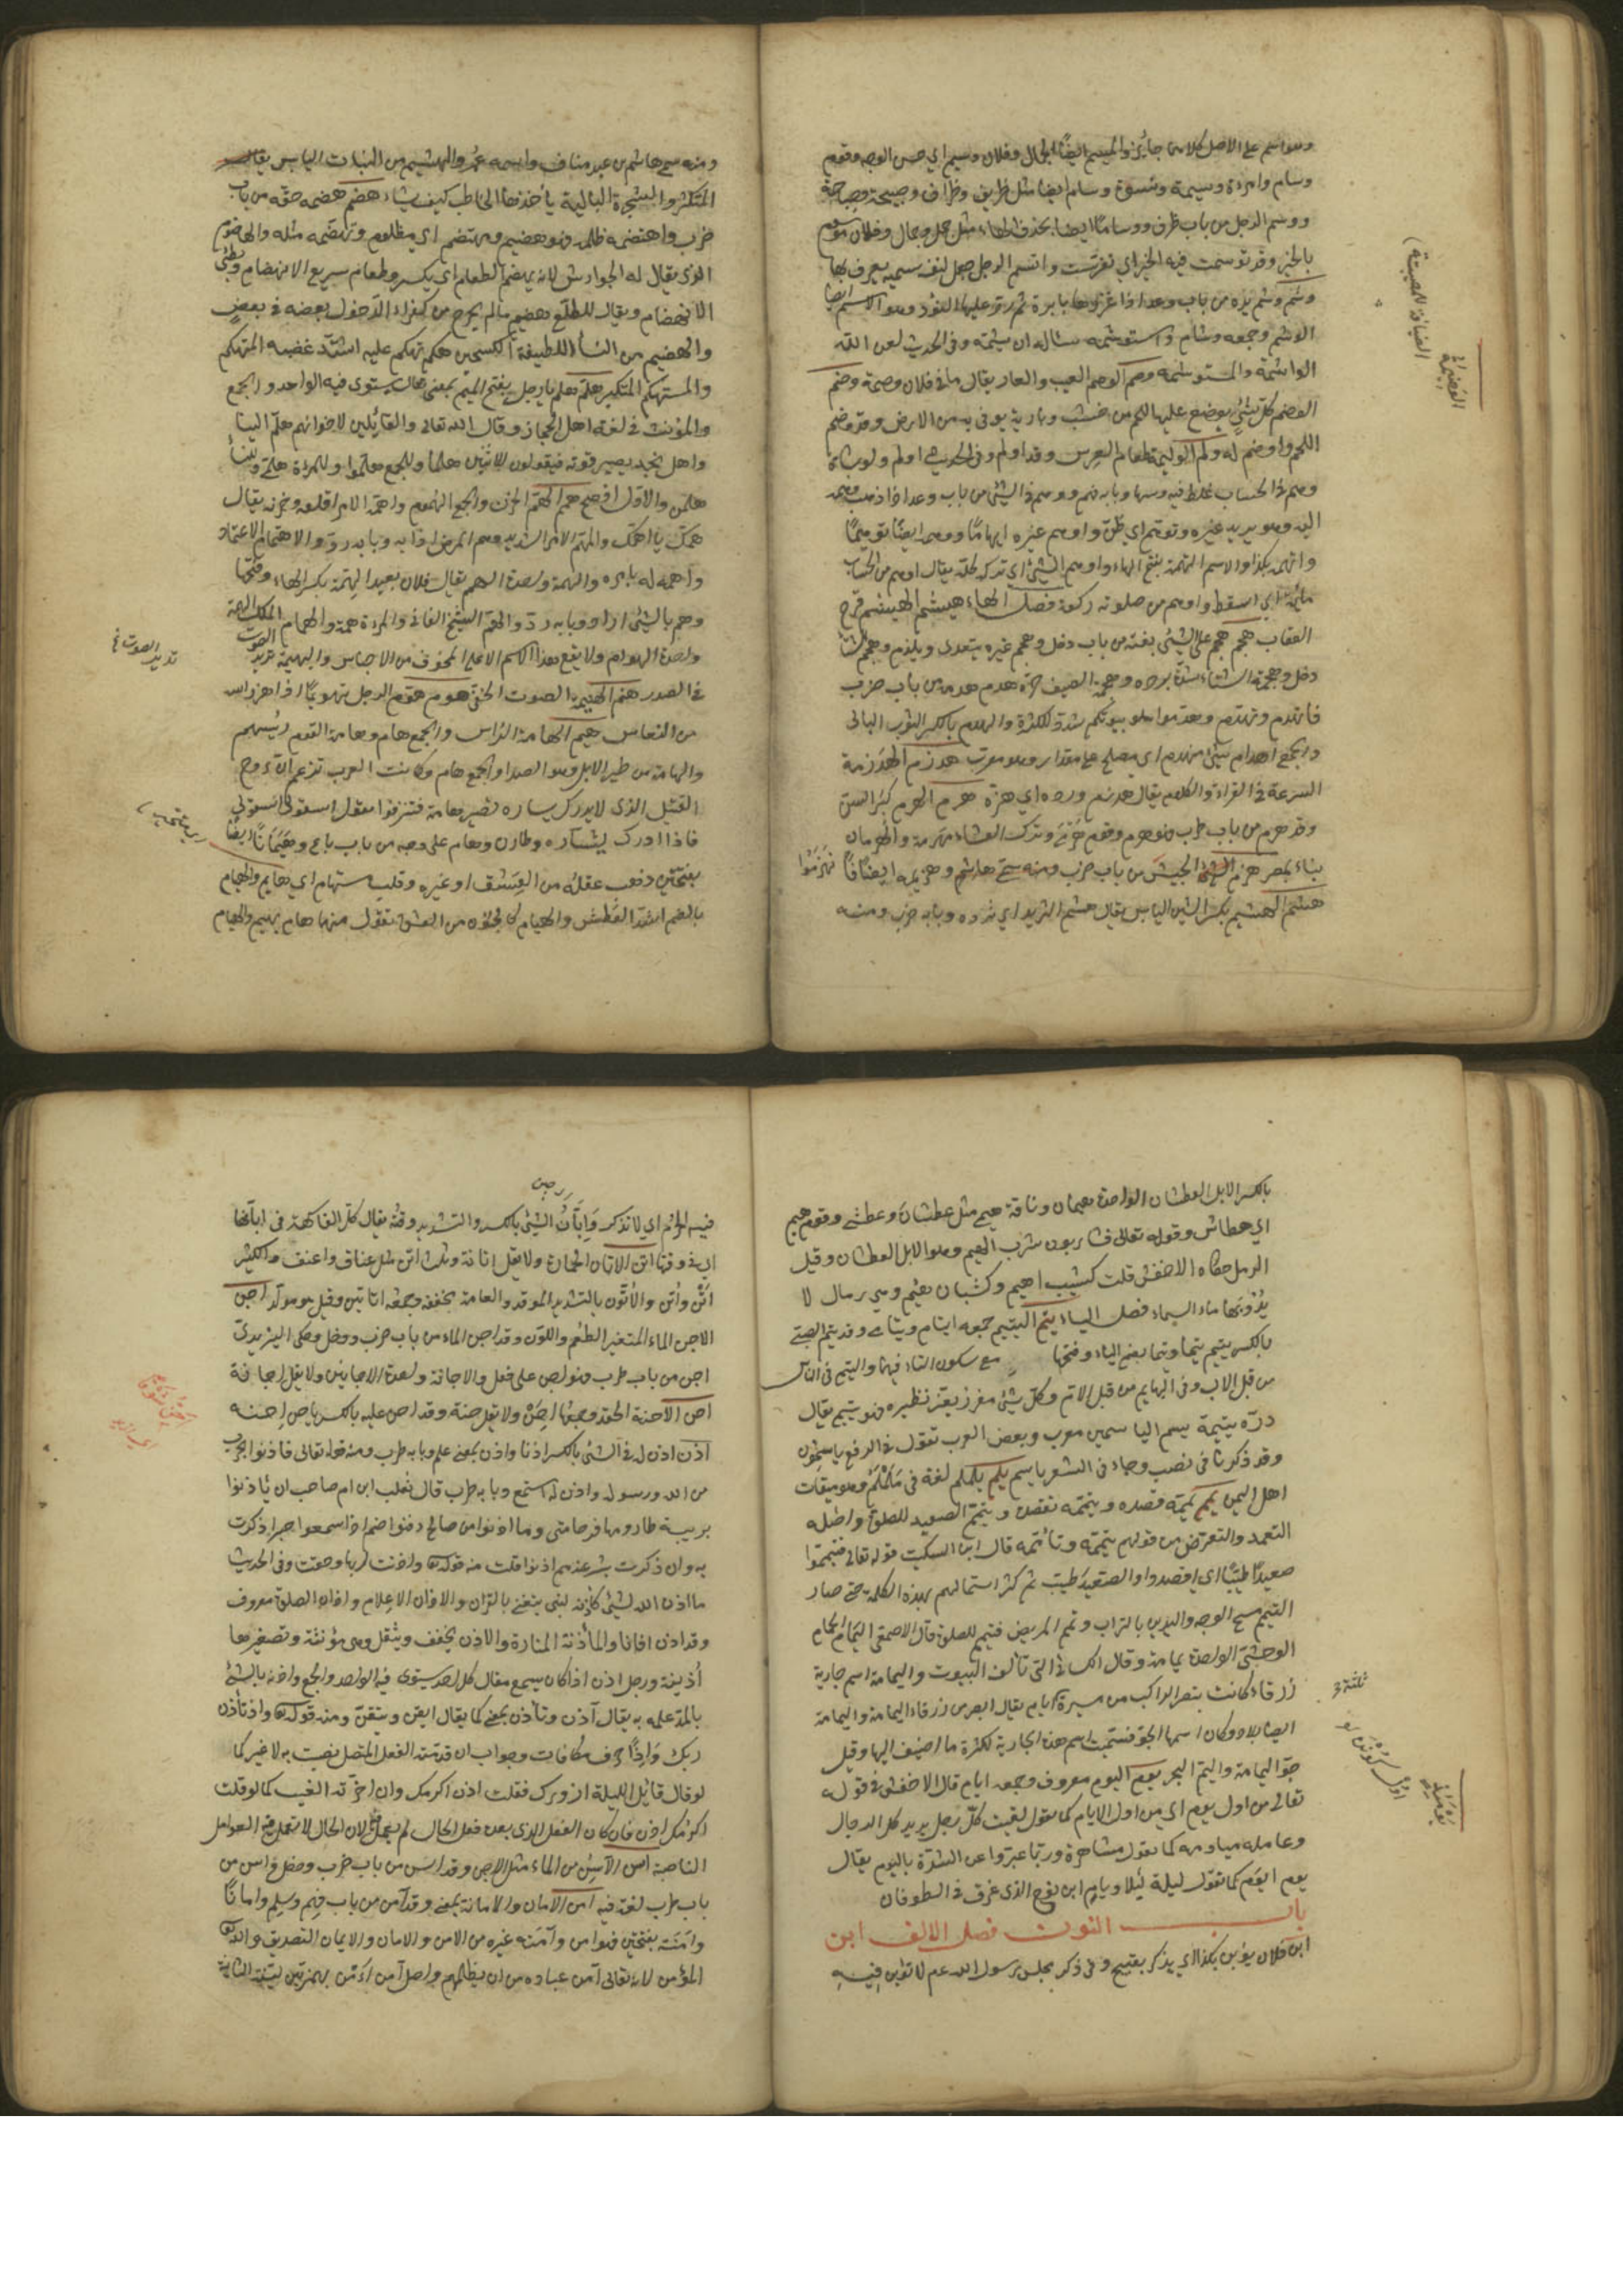 وهو اسم على الاصل كلاهما جائز والميسم ايضا الجمال وفلان وسيم اي حسن الوجه وقوم
وسام وامرءة وسيمة ونسوة وسام ايضا مثل ظريف وظراف وصبيحة وصباح
ووسم الرجل من باب ظرف ووساما ايضا بحذف الهاء مثل جمل وجمال وفلان موسوم
بالخير وقد توسمت فيه الخير اي تفرست واتسم الرجل جعل لنفسه سمة يعرف بها
وشم وشم يده من باب وعد اذا غرزها بابرة ثم ذر عليها النؤر وهو الاسم ايضا
الوشم وجمعه وشام واستوشمه سأله ان يشمه وفي الحديث لعن الله
الواشمة والمستوشمة وصم الوصم العيب والعار يقال ما في فلان وصمة وضم
الوضم كل شئ يوضع عليه اللحم من خشب وبارية يوقى به من الارض وقد وضم
اللحم واوضم له ولم الوليمة طعام العرس وقد اولم وفي الحديث اولم ولو بشاة
وهم في الحساب غلط فيه وسها وبابه فهم ووهم في الشئ من باب وعد اذا ذهب وهمه
اليه وهو يريد غيره وتوهم اي ظن واوهم غيره ايهاما ووهمه ايضا توهيما
واتهمه بكذا والاسم التهمة بفتح الهاء واوهم الشئ اي تركه كله يقال اوهم من الحساب
مائة اي اسقط واوهم من صلوته ركعة فصل الهاء هيثم الهيثم فرخ
العقاب هجم هجم على الشئ بغتة من باب دخل وهجم غيره يتعدى ويلزم وهجم الشتاء
دخل وهجمة الشتاء شدة برده وهجمة الصيف حره هدم هدمه من باب ضرب
فانهدم وتهدم وهدموا بيوتهم شدد للكثرة والهدم بالكسر الثوب البالي
والجمع اهدام شئ مهندم اي مصلح على مقدار وهو معرب هذرم الهذرمة
السرعة في القراءة والكلام يقال هذرم ورده اي هزه هرم الهرم كبر السن
وقد هرم من باب طرب فهو هرم وقوم هرمى وترك العشاء مهرمة والهرمان
بناء بمصر هزم الجيش من باب ضرب وهزيمة ايضا فانهزموا
هشم الهشيم بكسر الشين اليابس يقال هشم الثريد اي ثرده وبابه ضرب ومنه
الوضيمة
ومنه سمى هاشم بن عبد مناف واسمه عمرو والهشيم من النبات اليابس
المتكسر والشجرة البالية يأخذها الحاطب كيف يشاء هضم هضمه حقه من باب
ضرب واهتضمه ظلمه فهو هضيم ومهتضم اي مظلوم وتهضمه مثله والهاضوم
الذي يقال له الجوارش لانه يهضم الطعام اي يكسر وطعام سريع الانهضام وبطئ
الانهضام ويقال للطلع هضيم ما لم يخرج من كفراه لدخول بعضه في بعض
والهضيم من النساء اللطيفة الكشحين هكم تهكم عليه اشتد غضبه المتهكم
والمستهكم المتكبر هلم هلم يا رجل بفتح الميم بمعنى تعال يستوى فيه الواحد والجمع
والمؤنث في لغة اهل الحجاز وقال الله تعالى والقائلين لاخوانهم هلم الينا
واهل نجد يصرفونه فيقولون للاثنين هلما وللجمع هلموا وللمرءة هلمي وللنساء
هلمن والاول افصح همم الهم الحزن والجمع الهموم واهمه الامر اقلقه وحزنه يقال
همك ما اهمك والمهم الامر الشديد وهمه المرض اذابه وبابه رد والاهتمام الاغتمام
واهم له بامره والهمة واحدة الهمم يقال فلان بعيد الهمة بكسر الهاء وفتحها
وهم بالشئ اراده وبابه رد والهم الشيخ الفاني والمرءة همة والهمام الملك العظيم الهمة
واحدة الهوام ولا يقع هذا الاسم الا على المخوف من الاحناش والهمهمة ترديد الصوت
في الصدر هنم الهينمة الصوت الخفي هوم هوم الرجل تهويما اذا هز رأسه
من النعاس هيم الهامة الراس والجمع هام وهامة القوم رئيسهم
والهامة من طير الليل وهو الصدا والجمع هام وكانت العرب تزعم ان روح
القتيل الذي لا يدرك بثاره تصير هامة فتزقو تقول اسقوني اسقوني
فاذا ادرك بثاره طارت وهام على وجهه من باب باع وهيمانا ايضا
بفتحتين ذهب عقله من العشق او غيره وقلب مستهام اي هايم والهيام
بالضم اشد العطش والهيام كالجنون من العشق تقول منهما هام يهيم والهيام
ترديد الصوت في
بالكسر الابل العطاش الواحد هيمان وناقة هيمى مثل عطشان وعطشى وقوم هيم
اي عطاش وقوله تعالى فشاربون شرب الهيم وهو الابل العطاش وقيل
الرمل حكاه الاخفش قلت كثيب اهيم وكثبان هيم وهي رمال لا
يرويها ماء السماء فصل الياء يتم اليتيم جمعه ايتام ويتامى وقد يتم الصبي
بالكسر ييتم يتما ويتما بضم الياء وفتحها مع سكون التاء فيهما واليتم في الناس
من قبل الاب وفي البهايم من قبل الام وكل شئ مفرد يعز نظيره فهو يتيم يقال
درة يتيمة يسم الياسمين معرب وبعض العرب تقول في الرفع ياسمون
وقد ذكرنا في نصب وجاء في الشعر ياسم يلم يلملم لغة في الملم وهو ميقات
اهل اليمن يمم يممه قصده وتيممه تقصده وتيمم الصعيد للصلوة واصله
التعمد والتعرض من قولهم تيممه وتأممه قال ابن السكيت قوله تعالى فتيمموا
صعيدا طيبا اي اقصدوا الصعيد طيب ثم كثر استعمالهم بهذه الكلمة حتى صار
التيمم مسح الوجه واليدين بالتراب ويمم المريض فتيمم للصلوة قال الاصمعي اليمام الحمام
الوحشي الواحدة يمامة وقال الكسائي التي تألف البيوت واليمامة اسم جارية
زرقاء كانت تبصر الراكب من مسيرة ايام يقال ابصر من زرقاء اليمامة واليمامة
ايضا بلاد وكان اسمها الجو فسميت باسم هذه الجارية لكثرة ما اضيف اليها وقيل
جو اليمامة واليم البحر يوم اليوم معروف وجمعه ايام قال الاخفش في قوله
تعالى من اول يوم اي من اول الايام كما تقول لقيت كل رجل يريد كل الرجال
وعامله مياومة كما تقول مشاهرة وربما عبروا عن الشدة باليوم يقال
يوم ايوم كما تقول ليلة ليلاء ويام ابن نوح الذي غرق في الطوفان
باب النون فصل الالف ابن
ابن فلان يؤبن بكذا اي يذكر بقبيح وفي ذكر مجلس رسول الله عم لا تؤبن فيه
ثلثة
فيه الحرم اي لا تذكر وابان الشئ بالكسر والتشديد وقته يقال كل الفاكهة في ابانها
اي في وقتها اتن الاتان الحمارة ولا يقل اتانة وثلث اتن مثل عناق واعنق والكثير
اتن واتن والاتون بالتشديد الموقد والعامة تخففه وجمعه اتاتين وقيل هو مولد اجن
الاجن الماء المتغير الطعم واللون وقد اجن الماء من باب ضرب ودخل وحكى اليزيدي
اجن من باب طرب فهو اجن على فعل والاجانة واحدة الاجاجين ولا يقل انجانة
احن الاحنة الحقد وجمعها احن ولا يقل حنة وقد احن عليه بالكسر ياحن احنة
اذن اذن له في الشئ بالكسر اذنا واذن بمعنى علم وبابه طرب ومنه قوله تعالى فاذنوا بحرب
من الله ورسوله واذن له استمع وبابه طرب قال قعنب ابن ام صاحب ان يأذنوا
بريبة طاروا بها فرحا مني وما اذنوا من صالح دفنوا صم اذا سمعوا خيرا ذكرت
به وان ذكرت بشر عندهم اذنوا قلت منه قوله تعالى واذنت لربها وحقت وفي الحديث
ما اذن الله لشئ كاذنه لنبي يتغنى بالقران والاذان الاعلام واذان الصلوة معروف
وقد اذن اذانا والمأذنة المنارة والاذن يخفف ويثقل وهي مؤنثة وتصغيرها
اذينة ورجل اذن اذا كان يسمع مقال كل احد يستوى فيه الواحد والجمع واذنه بالشئ
بالمد علمه به يقال آذن وتأذن بمعنى كما يقال ايقن وتيقن ومنه قوله تعالى واذ تأذن
ربك واذا حرف مكافات وجواب ان قدمته الفعل المتصل نصبت به لا غير كما
لو قال قائل الليلة ازورك فقلت اذن اكرمك وان اخرته الغيت كما لو قلت
اكرمك اذن فان كان الفعل الذي بعده فعل الحال لم يعمل لان الحال لا تعمل فيه العوامل
الناصبة اسن الآسن من الماء مثل الاجن وقد اسن من باب ضرب ودخل واسن من
باب طرب لغة فيه امن الامان والامانة بمعنى وقد امن من باب فهم وسلم وامانا
وامنة بفتحتين فهو امن وآمنه غيره من الامن والامان والايمان التصديق والله تعالى
المؤمن لانه تعالى آمن عباده من ان يظلمهم واصل آمن اأمن بهمزتين لينت الثانية